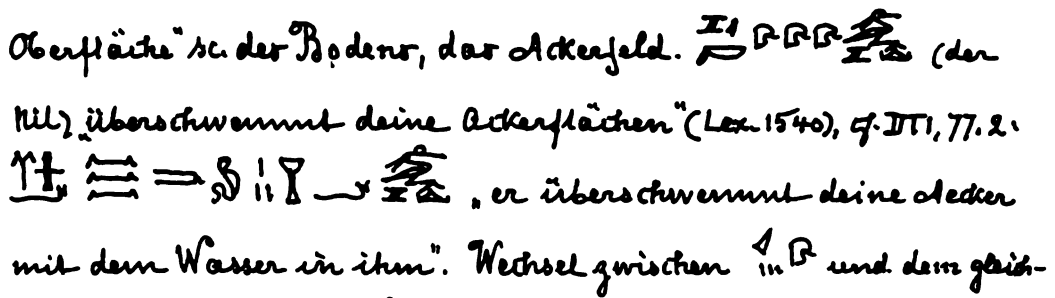 Oberfläche" sc. des Bodens, das Ackerfeld. (der
Nil) „überschwemmt deine Ackerflächen" (Lex. 1540), cf. DTI, 77. 2:
„er überschwemmt deine Aecker
mit dem Wasser in ihm". Wechsel zwischen und dem gleich-